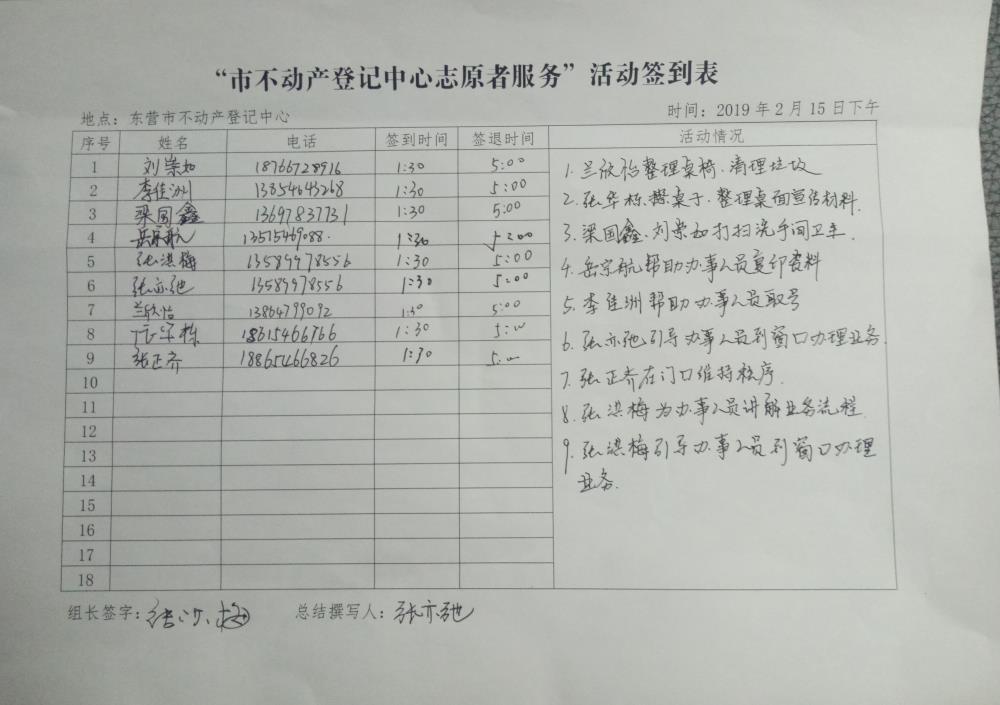 “市不动产登记中心志原者服务”活动签到表
地点：东营市不动产登记中心 时间：2019年2月15日下午
序号 姓名 电话 签到时间 签退时间 活动情况
1 刘崇如 18766728916 1:30 5:00
2 李佳洲 13854643268 1:30 5:00
3 梁国鑫 13697837731 1:30 5:00
4 岳宗航 13515469088. 1:30 5:00
5 张洪梅 13589978556 1:30 5:00
6 张亦弛 13589978556 1:30 5:00
7 兰欣怡 13864799092 1:30 5:00
8 张华栋 18615466766 1:30 5:00
9 张正齐 18865466826 1:30 5:00
10
11
12
13
14
15
16
17
18
1. 兰欣怡整理桌椅、清理垃圾
2. 张华栋擦桌子、整理桌面宣传材料.
3. 梁国鑫、刘崇如打扫洗手间卫生.
4. 岳宗航帮助办事人员复印资料
5. 李佳洲帮助办事人员取号
6. 张亦弛引导办事人员到窗口办理业务.
7. 张正齐在门口维持秩序.
8. 张洪梅为办事人员讲解业务流程.
9. 张洪梅引导办事人员到窗口办理
业务.
组长签字：张洪梅 总结撰写人：张亦弛